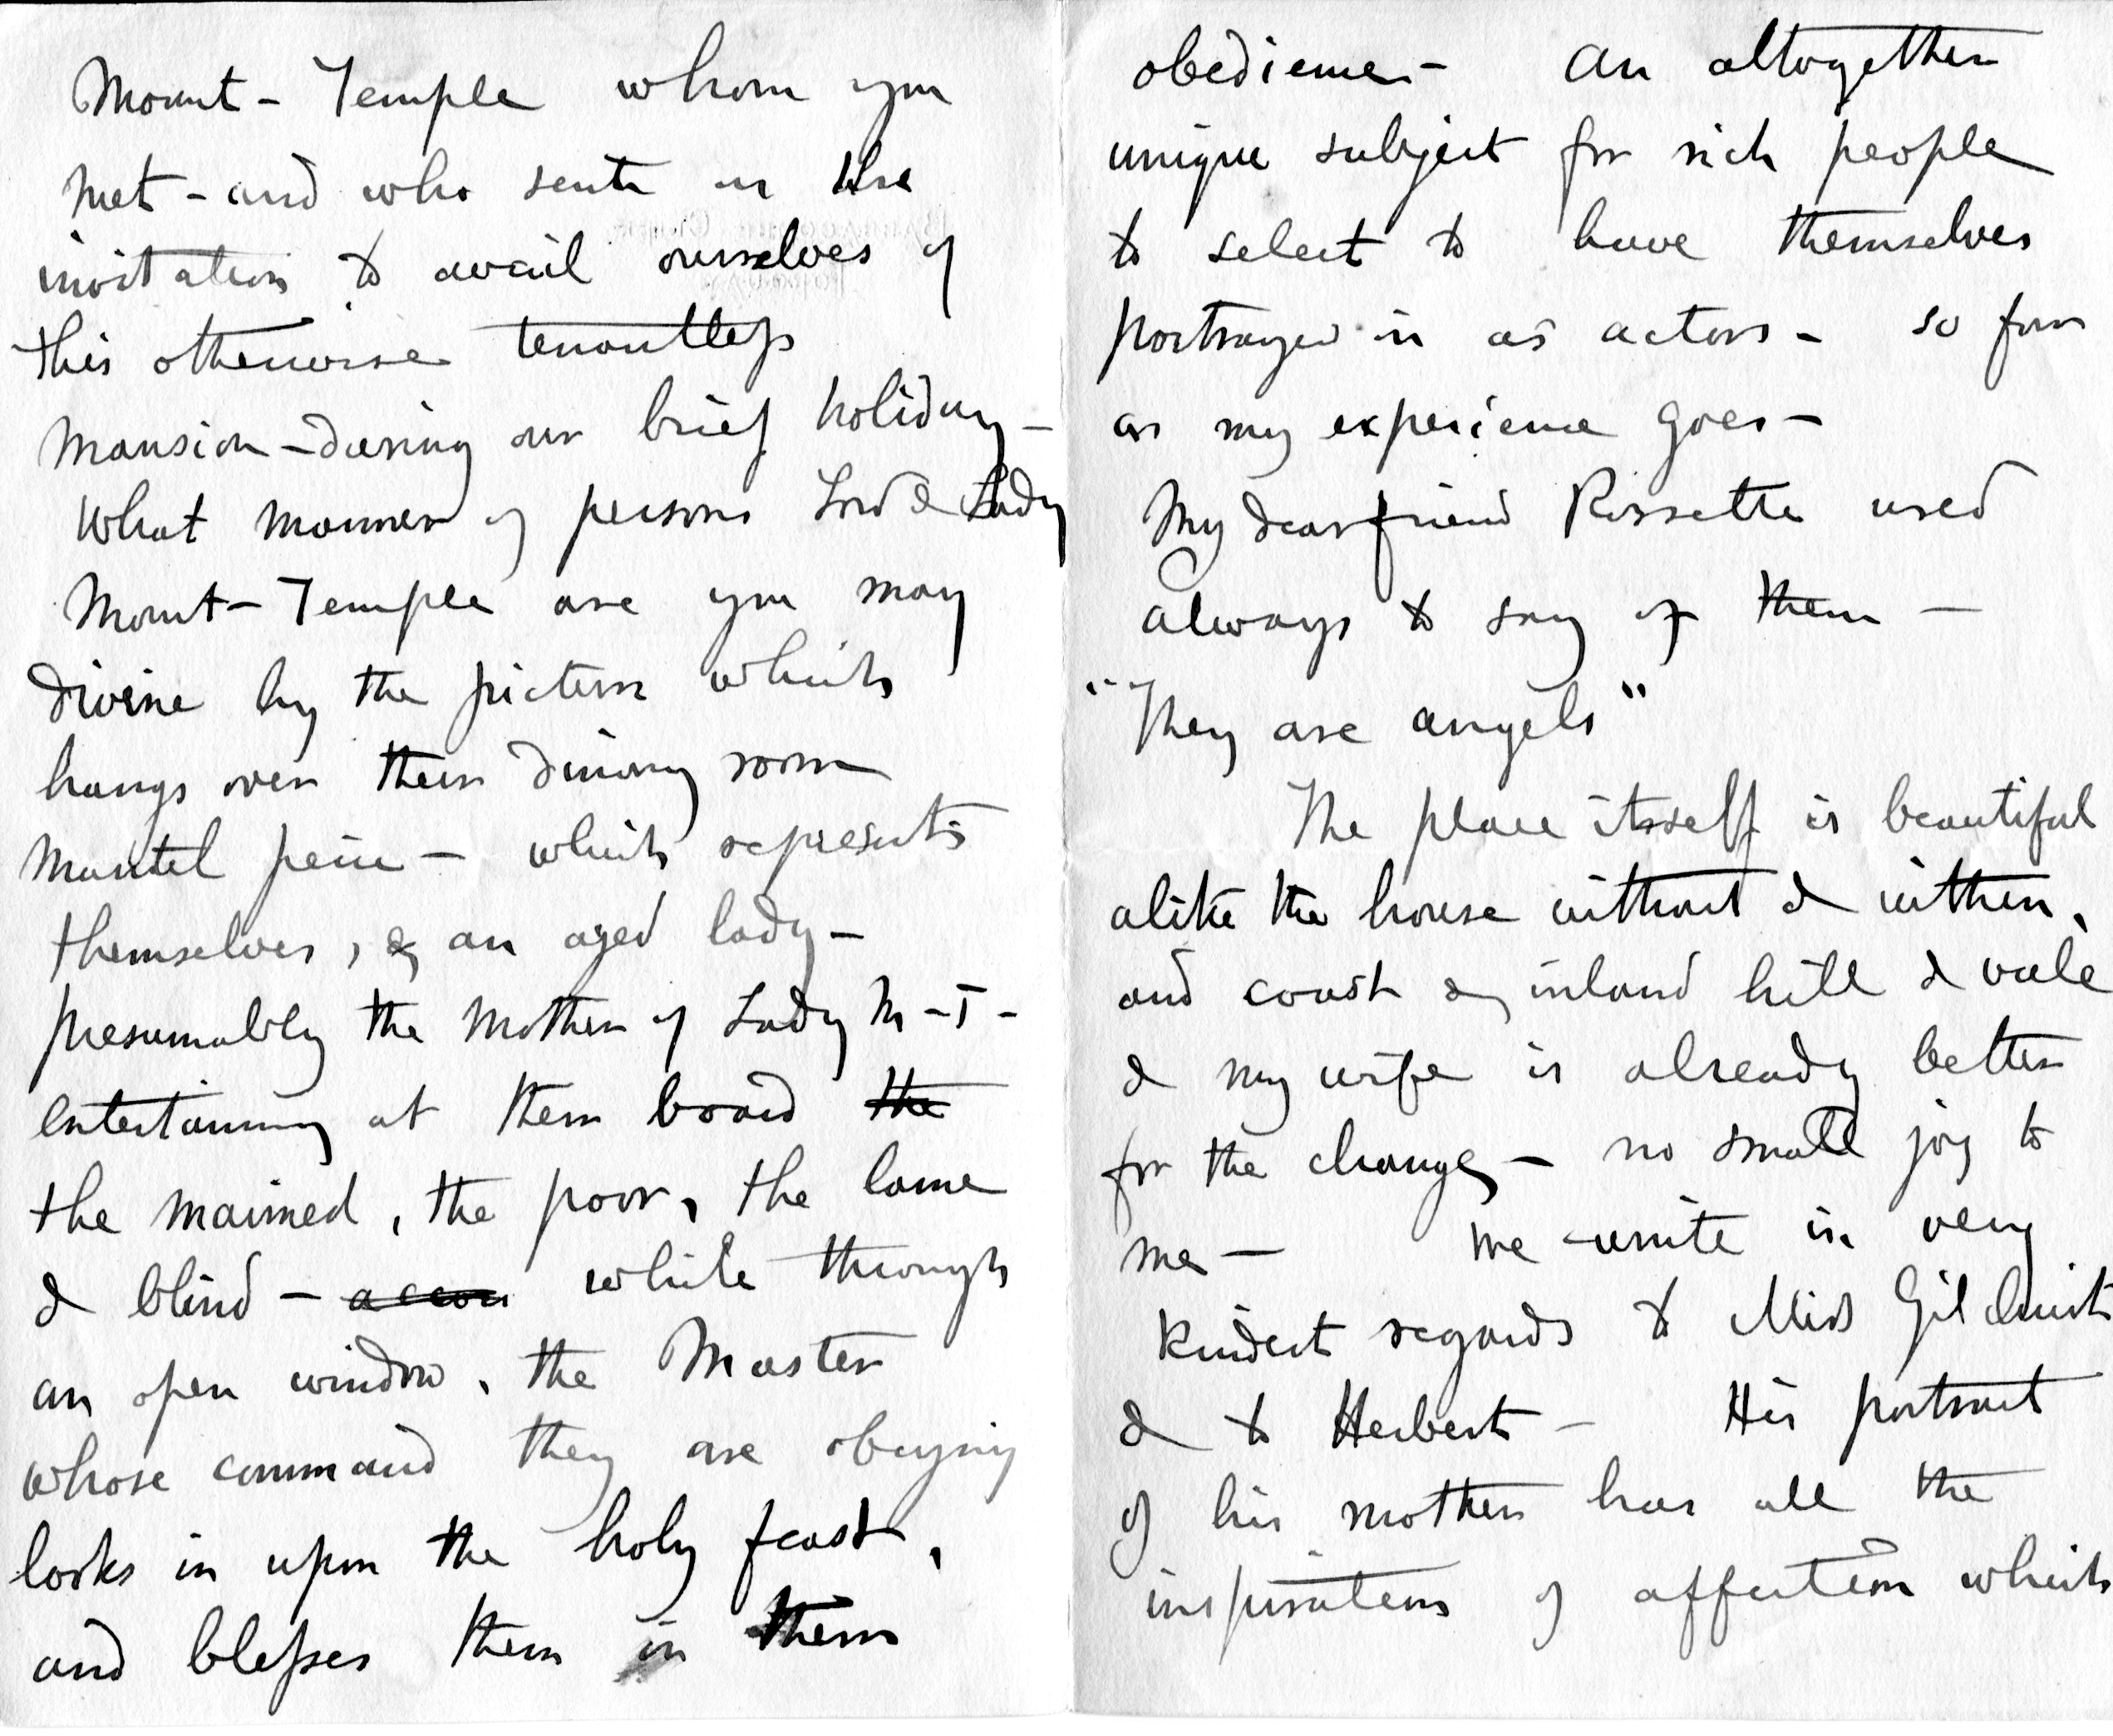 Mount-Temple whom you
met - and who sent us the
invitation to avail ourselves of
this otherwise tenantless
mansion - during our brief holiday -
What manner of persons Lord & Lady
Mount-Temple are you may
divine by the picture which
hangs over their dining room
mantel piece - which represents
themselves, & an aged lady -
presumably the mother of Lady M-T-
entertaining at their board the
the maimed, the poor, the lame
& blind - while through
an open window, the Master
whose command they are obeying
looks in upon the holy feast,
and blesses them in their
obedience - An altogether
unique subject for rich people
to select to have themselves
portrayed in as actors - so far
as my experience goes -
My dear friend Rossetti used
always to say of them -
"They are angels"
The place itsself is beautiful
alike the house without & within,
and coast & inland hill & vale
& my wife is already better
for the change - no small joy to
me - We unite in very
kindest regards to Miss Gilchrist
& to Herbert - His portrait
of his mother has all the
inspiration of affection which